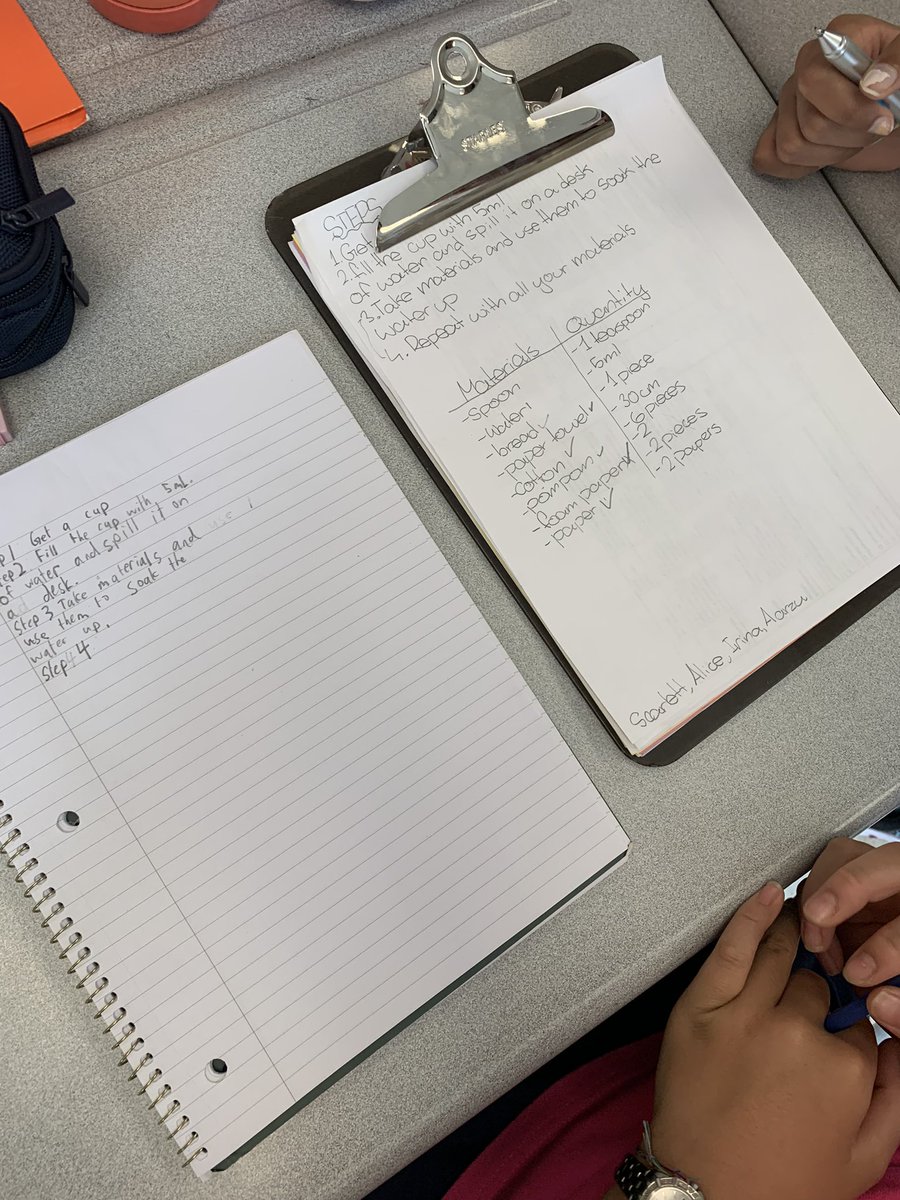 STAPLES
STEPS
1. Get
2. fill the cup with 5ml
of water and spill it on a desk
3. Take materials and use them to soak the
water up
4. Repeat with all your materials
Materials | Quantity
-spoon -1 teaspoon
-water -5ml
-bread ✓ -1 piece
-paper towel ✓ -30cm
-cotton ✓ -6 pieces
-pompom ✓ -2
-foam paper -2 pieces
-paper ✓ -2 papers
Scarlett, Alice, Irina,
ep1 Get a cup
tep2 Fill the cup with 5ml.
of water and spill it on
a desk.
Step 3 Take materials and use
use them to soak the
water up.
Step 4